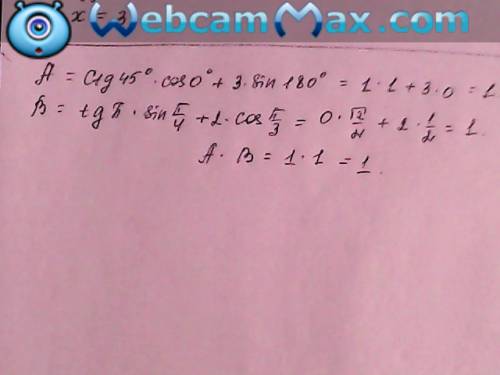 x = 3
WebcamMax.com
A = ctg 45° · cos 0° + 3 · sin 180° = 1 · 1 + 3 · 0 = 1
B = tg π · sin π/4 + 2 · cos π/3 = 0 · √2/2 + 2 · 1/2 = 1.
A · B = 1 · 1 = 1.